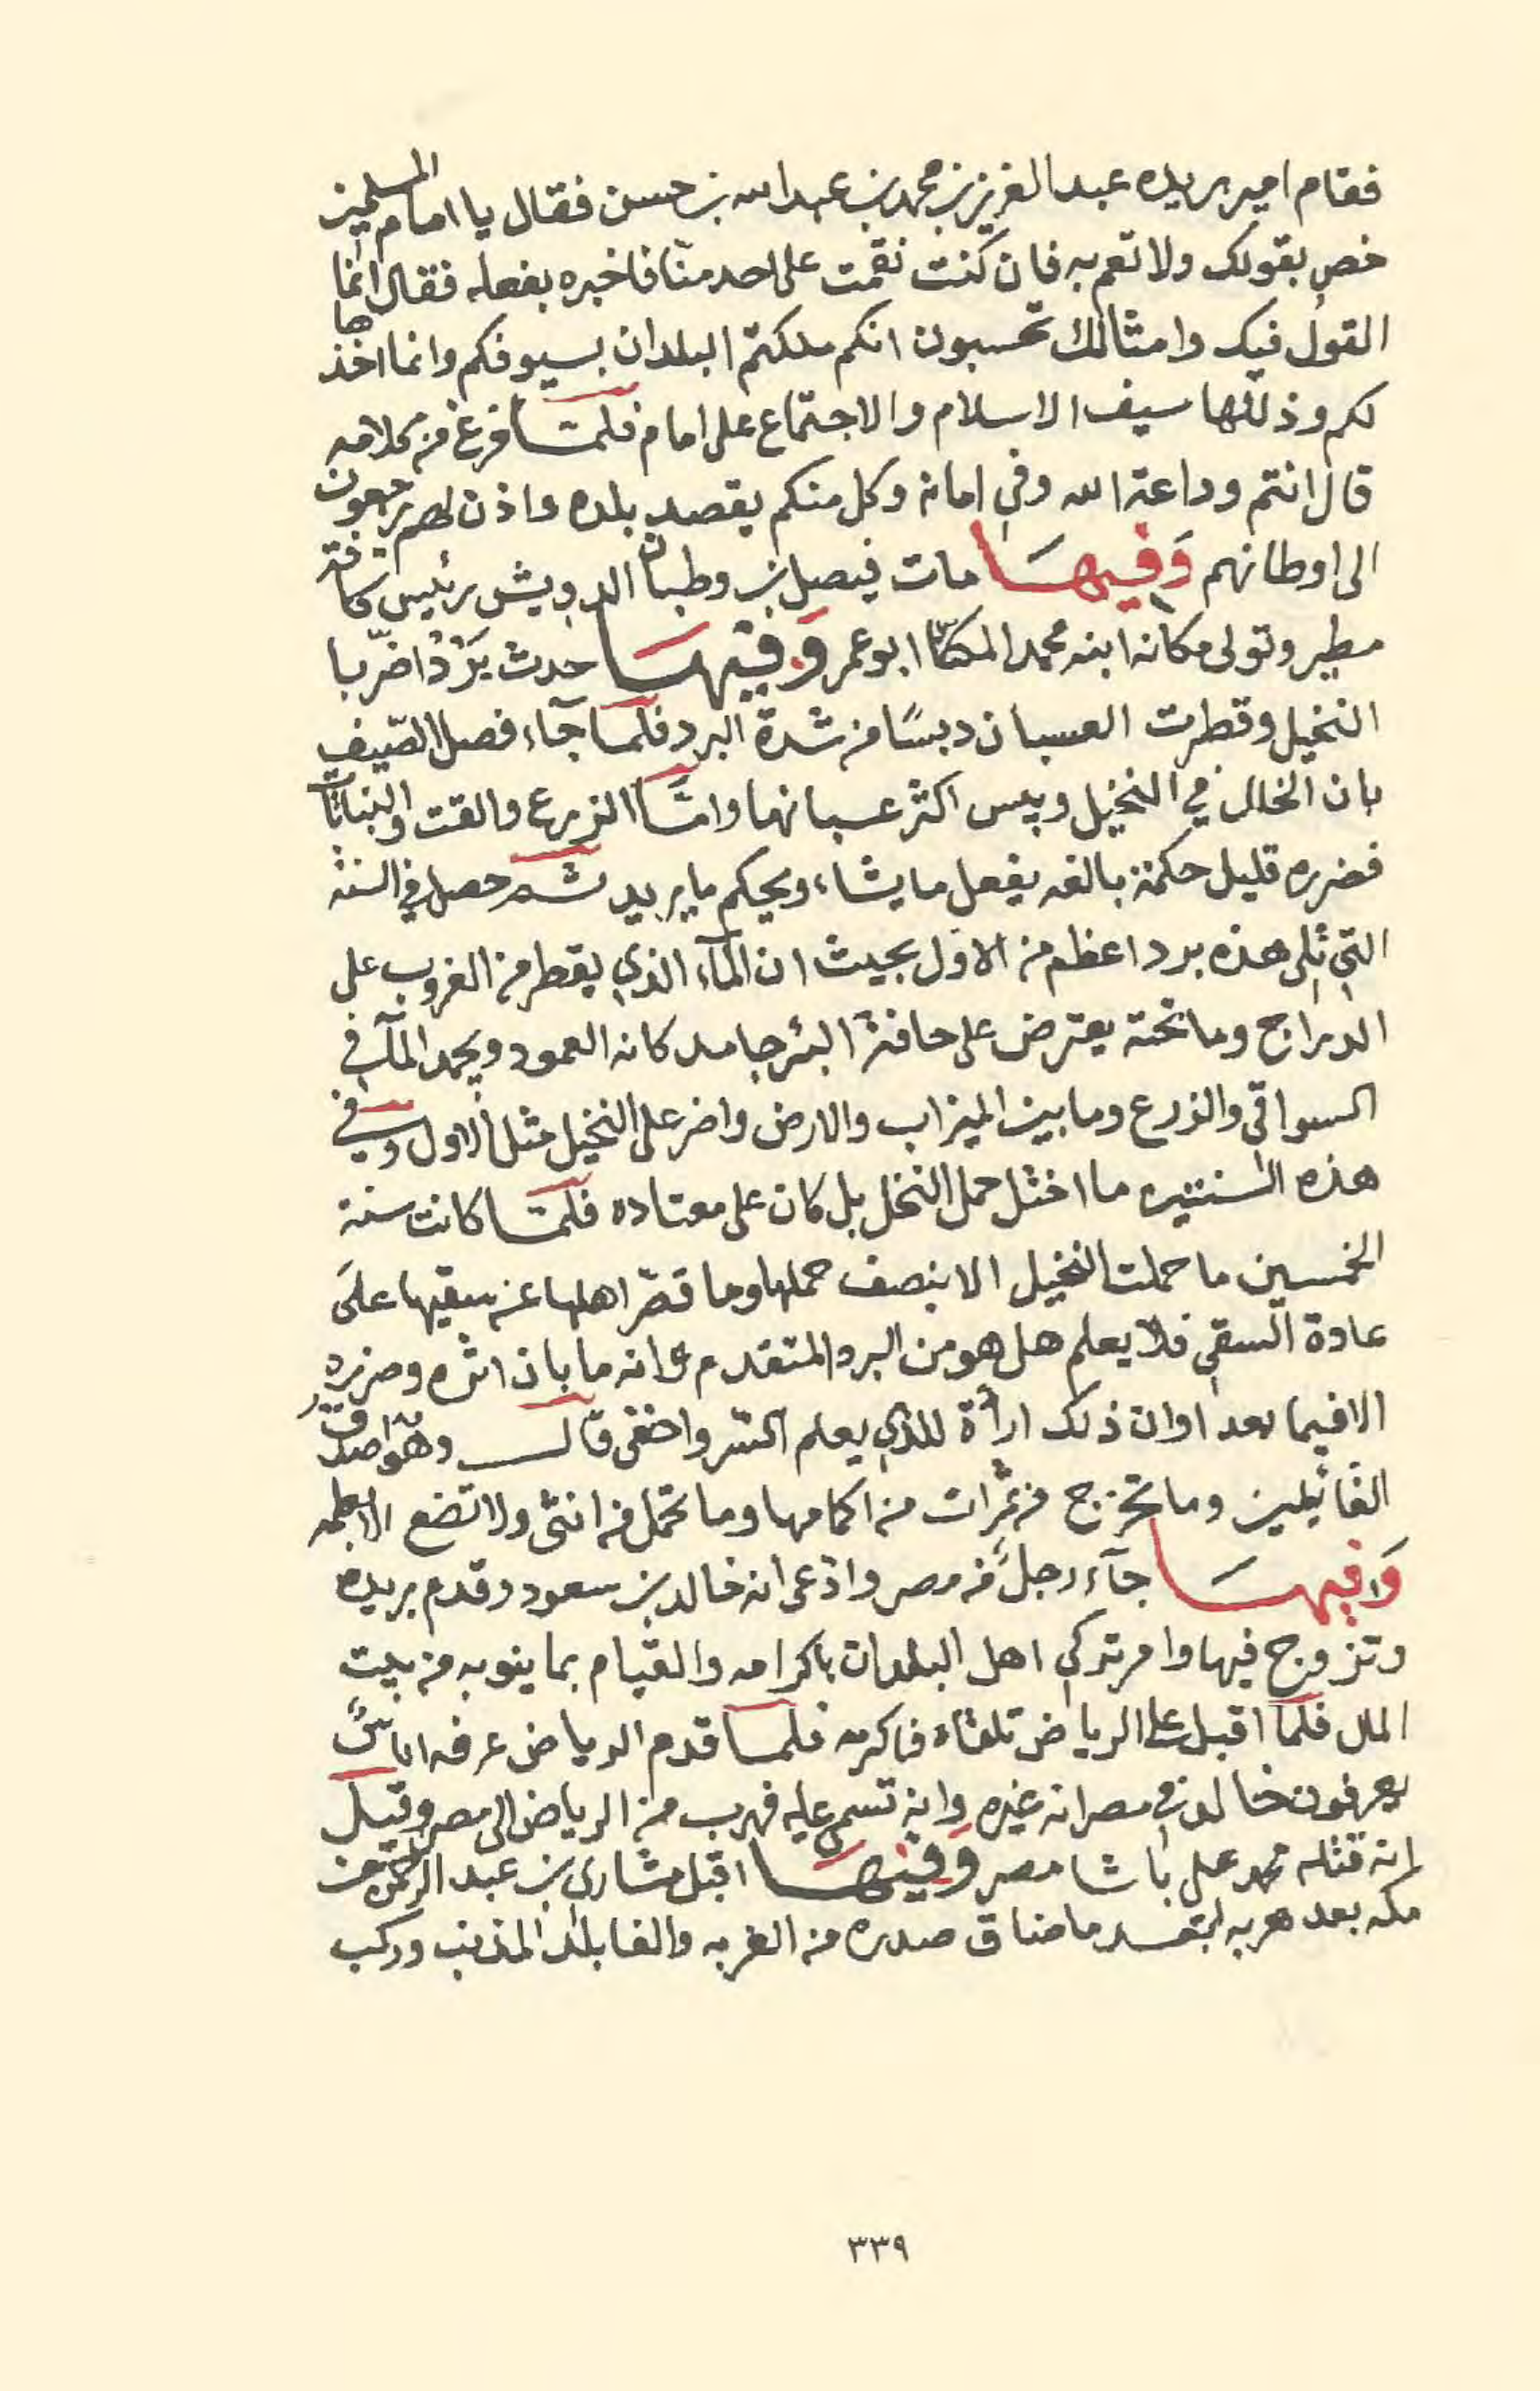 فقام امير بريده عبد العزيز بن محمد بن عبد الله بن حسن فقال يا امام المسلمين
خص بقولك ولا تعم به فان كنت نقمت على احد منّا فاخبره بفعله فقال انما
القول فيك وامثالك تحسبون انكم ملكتم البلدان بسيوفكم وانما اخذها
لكم وذللها سيف الاسلام والاجتماع على امام فلمّا فرغ من كلامه
قال انتم وداعة الله وفي امانه وكل منكم يقصد بلده واذن لهم يرجعون
الى اوطانهم وَفيهَا مات فيصل بن وطبان الدويش رئيس كافة
مطير وتولى مكانه ابنه محمد المكنّا ابو عمر وَفيْهَا حدث بَرْدٌ اضرّ با
النخيل وقطرت العسبان دبسًا من شدة البرد فلما جآء فصل الصّيف
بان الخلل في النخيل ويبس اكثر عسبانها وامّا الزرع والقت والنباتات
فضرره قليل حكمة بالغه يفعل ما يشاء ويحكم ما يريد ثم حصل في السنة
التي تلى هذه برد اعظم من الاول بحيث ان المآء الذي يقطر من الغروب على
الدراج وما تحته يعترض على حافة البئر جامد كانه العمود ويجمد المآ في
السواقي والزرع وما بين الميزاب والارض واضر على النخيل مثل الاول وفي
هذه السنتين ما اختل حمل النخل بل كان على معتاده فلمّا كانت سنة
الخمسين ما حملت النخيل الا بنصف حملها وما قصّر اهلها عن سقيها علىَ
عادة السقي فلا يعلم هل هو من البرد المتقدم وانه ما بان اثره وضرره
الا فيما بعد اوان ذلك ارادة للذي يعلم السّر واخفى قال وهو اصدق
القائلين وما تخرج من ثمرات من اكمامها وما تحمل من انثى ولا تضع الا بعلمه
وَفيهَا جآء رجلٌ من مصر وادّعى انه خالد بن سعود وقدم بريده
وتزوج فيها وامر تركي اهل البلدان باكرامه والقيام بما ينوبه من بيت
المال فلما اقبل على الرياض تلقاه فاكرمه فلما قدم الرياض عرفه اناسٌ
يعرفون خالد في مصر انه غيره وانه تسمى عليه فهرب من الرياض الى مصر وقيل
انه قتله محمد علي باشا مصر وَفيْهَا اقبل مشاري بن عبد الرحمن من
مكه بعد هربه بعد ما ضاق صدره من الغربه والفا بلد المذنب وركب
٣٣٩